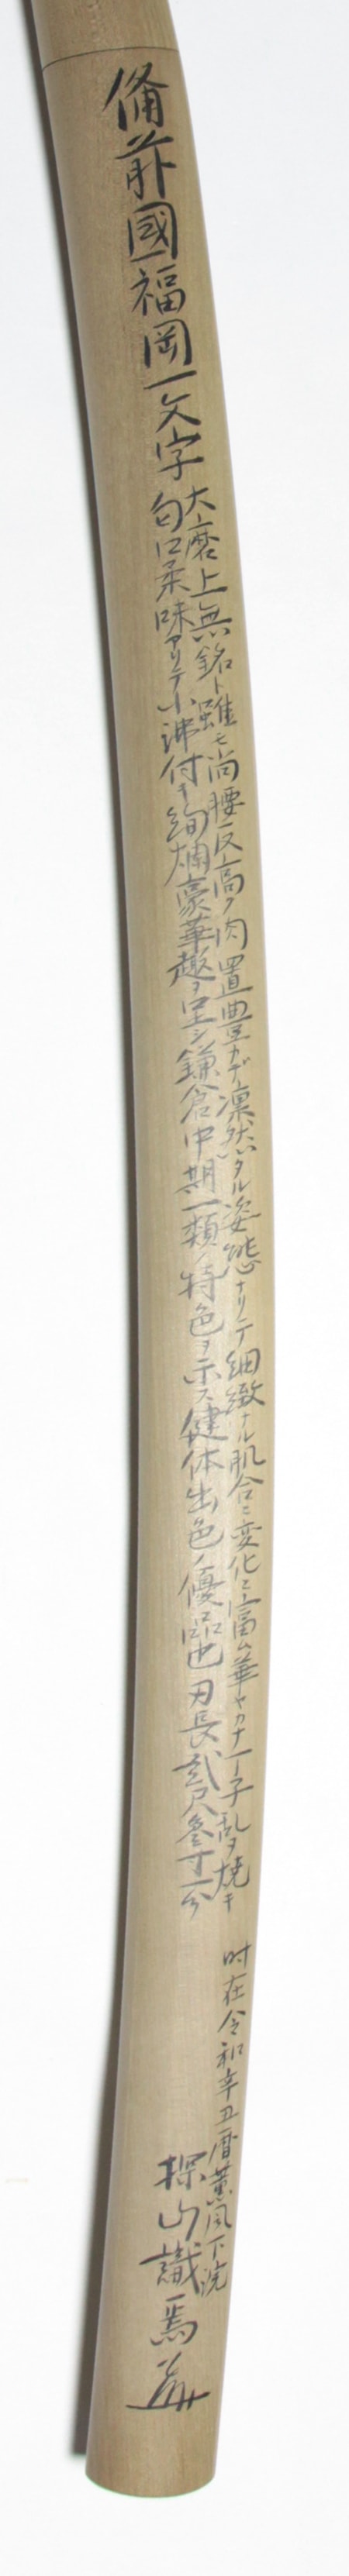 備前國福岡一文字
大磨上無銘ト雖モ尚腰反高ク肉置豊カデ凛然タル姿態ナリテ細緻ナル肌合ニ変化ニ富ム華ヤカナ丁子乱ヲ焼キ
匂口柔味アリテ小沸付キ絢爛豪華趣ヲ呈シ鎌倉中期一類ノ特色ヲ示ス健体出色ノ優品也 刃長貳尺参寸一分
时在令和辛丑暦薫風下浣
探山識焉